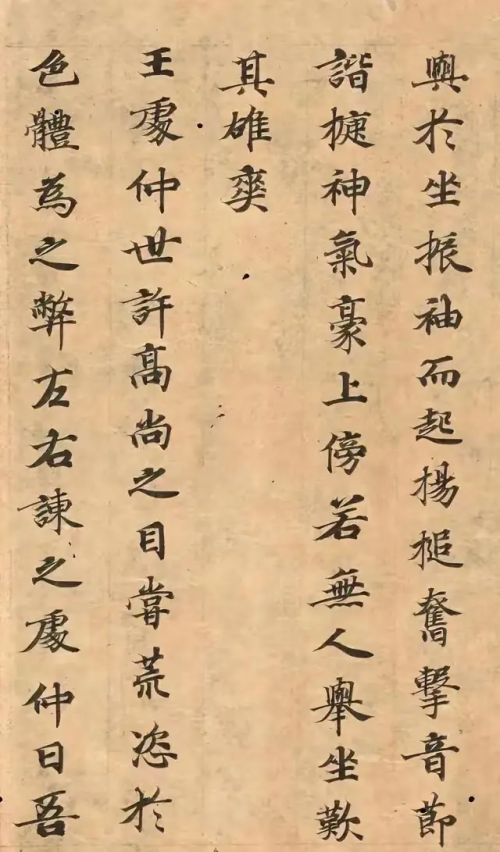 輿於坐振袖而起揚槌奮擊音節
諧捷神氣豪上傍若無人舉坐歎
其雄爽
王處仲世許高尚之目嘗荒恣於
色體為之弊左右諫之處仲曰吾